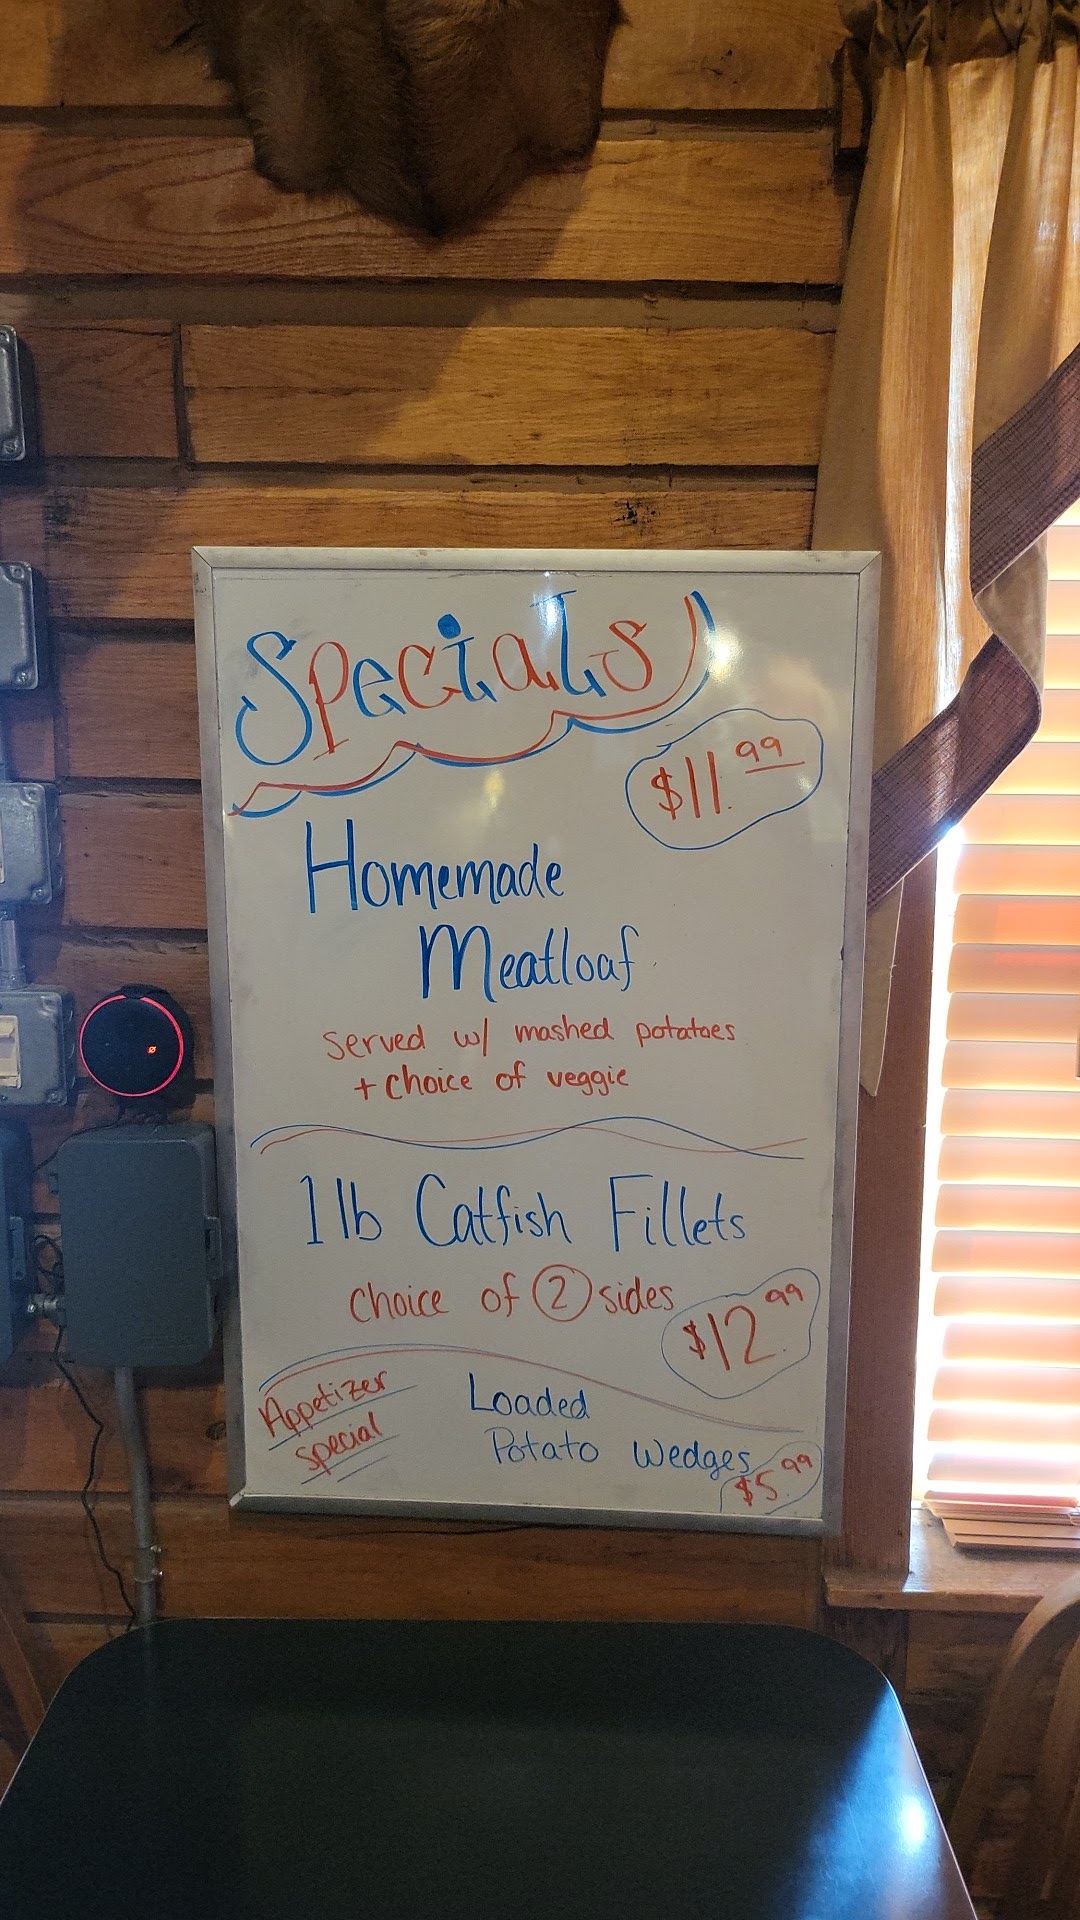 Specials
$11.99
Homemade
Meatloaf
served w/ mashed potatoes
+ choice of veggie
1 lb Catfish Fillets
choice of 2 sides
$12.99
Appetizer
special
Loaded
Potato Wedges
$5.99